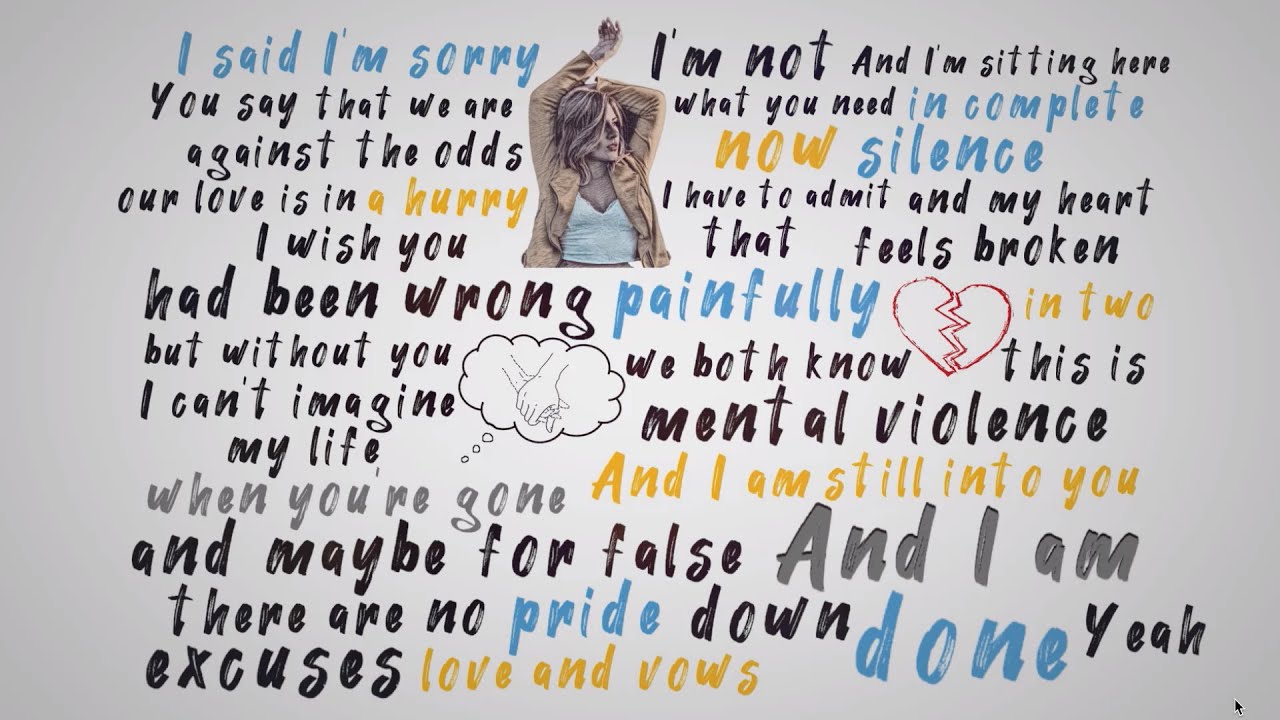 I said I'm sorry
You say that we are
against the odds
our love is in a hurry
I wish you
had been wrong
but without you
I can't imagine
my life
when you're gone
and maybe for false
there are no pride down
excuses love and vows
I'm not
what you need
now
I have to admit
that
painfully
we both know
And I'm sitting here
in complete
silence
and my heart
feels broken
in two
this is
mental violence
And I am still into you
And I am
done Yeah